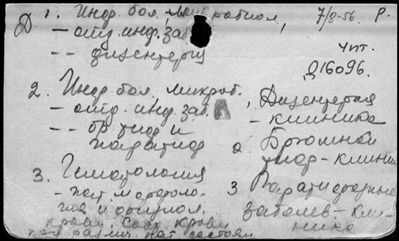 Д
1. Инф. бол., микробиол., 7/8-56. Р.
- отд. инф. заб.
-- дизентерия
Чит.
Д16096.
2. Инф. бол. микроб.
- отд. инф. заб. А
-- бр. тиф и
паратиф
1. Дизентерия
- клиника
2. Брюшной
тиф - клиника
3. Гематология
- пат. морфоло-
гия и
крови, сост. крови
при разл. пат. состоян.
3. Паратифозные
заболев. - кли-
ника